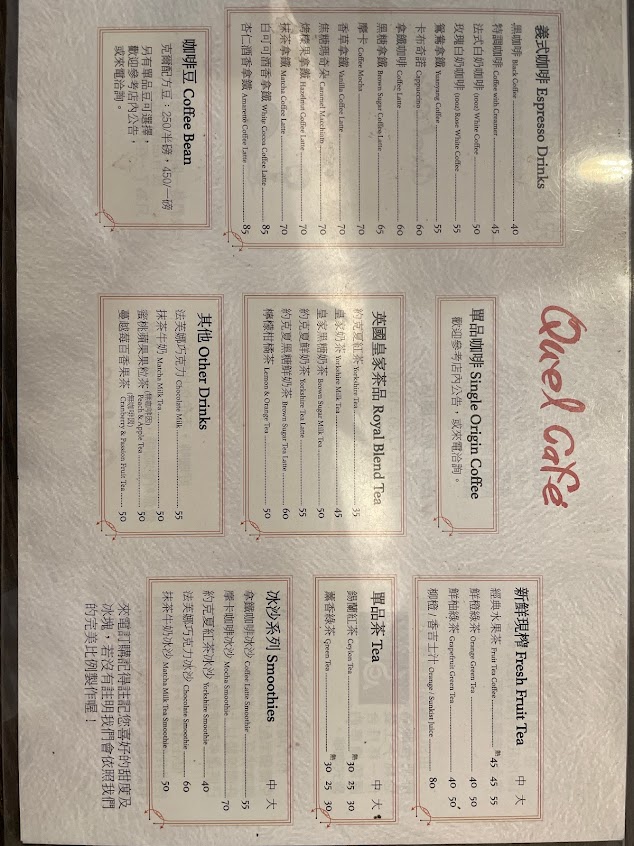 Quel Café
義式咖啡 Espresso Drinks
黑咖啡 Black Coffee 40
特調咖啡 Coffee with Creamer 45
法式白奶咖啡 (10oz) White Coffee 50
玫瑰白奶咖啡 (10oz) Rose White Coffee 55
鴛鴦拿鐵 Yuenyang Coffee 55
卡布奇諾 Cappuccino 60
拿鐵咖啡 Coffee Latte 60
黑糖拿鐵 Brown Sugar Coffee Latte 65
摩卡 Coffee Mocha 70
香草拿鐵 Vanilla Coffee Latte 70
焦糖瑪奇朵 Caramel Macchiato 70
烤榛果拿鐵 Hazelnut Coffee Latte 70
抹茶拿鐵 Matcha Coffee Latte 70
白可可酒香拿鐵 White Cocoa Coffee Latte 85
杏仁酒香拿鐵 Amaretto Coffee Latte 85
咖啡豆 Coffee Bean
克爾配方豆：250/半磅，450/一磅
另有單品豆可選擇，
歡迎參考店內公告，
或來電洽詢。
單品咖啡 Single Origin Coffee
歡迎參考店內公告，或來電洽詢。
英國皇家茶品 Royal Blend Tea
約克夏紅茶 Yorkshire Tea 35
皇家奶茶 Yorkshire Milk Tea 45
皇家黑糖奶茶 Brown Sugar Milk Tea 50
約克夏鮮奶茶 Yorkshire Tea Latte 55
約克夏黑糖鮮奶茶 Brown Sugar Tea Latte 60
檸檬柑橘茶 Lemon & Orange Tea 50
其他 Other Drinks
法芙娜巧克力 Chocolate Milk 55
抹茶牛奶 Matcha Milk Tea 50
蜜桃蘋果果粒茶 (無咖啡因) Peach & Apple Tea 50
蔓越莓百香果茶 (無咖啡因) Cranberry & Passion Fruit Tea 50
新鮮現榨 Fresh Fruit Tea 中 大
經典水果茶 Fruit Tea Coffee 熱 45 45 55
鮮橙綠茶 Orange Green Tea 40 50
鮮柚綠茶 Grapefruit Green Tea 40 50
柳橙/香吉士汁 Orange / Sunkist Juice 80
單品茶 Tea 中 大
錫蘭紅茶 Ceylon Tea 熱 30 25 30
薰香綠茶 Green Tea 熱 30 25 30
冰沙系列 Smoothies 中 大
拿鐵咖啡冰沙 Coffee Latte Smoothie 55
摩卡咖啡冰沙 Mocha Smoothie 70
約克夏紅茶冰沙 Yorkshire Smoothie 40
法芙娜巧克力冰沙 Chocolate Smoothie 60
抹茶牛奶冰沙 Matcha Milk Tea Smoothie 50
來電訂購記得註記您喜好的甜度及
冰塊，若沒有註明我們會依照我們
的完美比例製作喔！